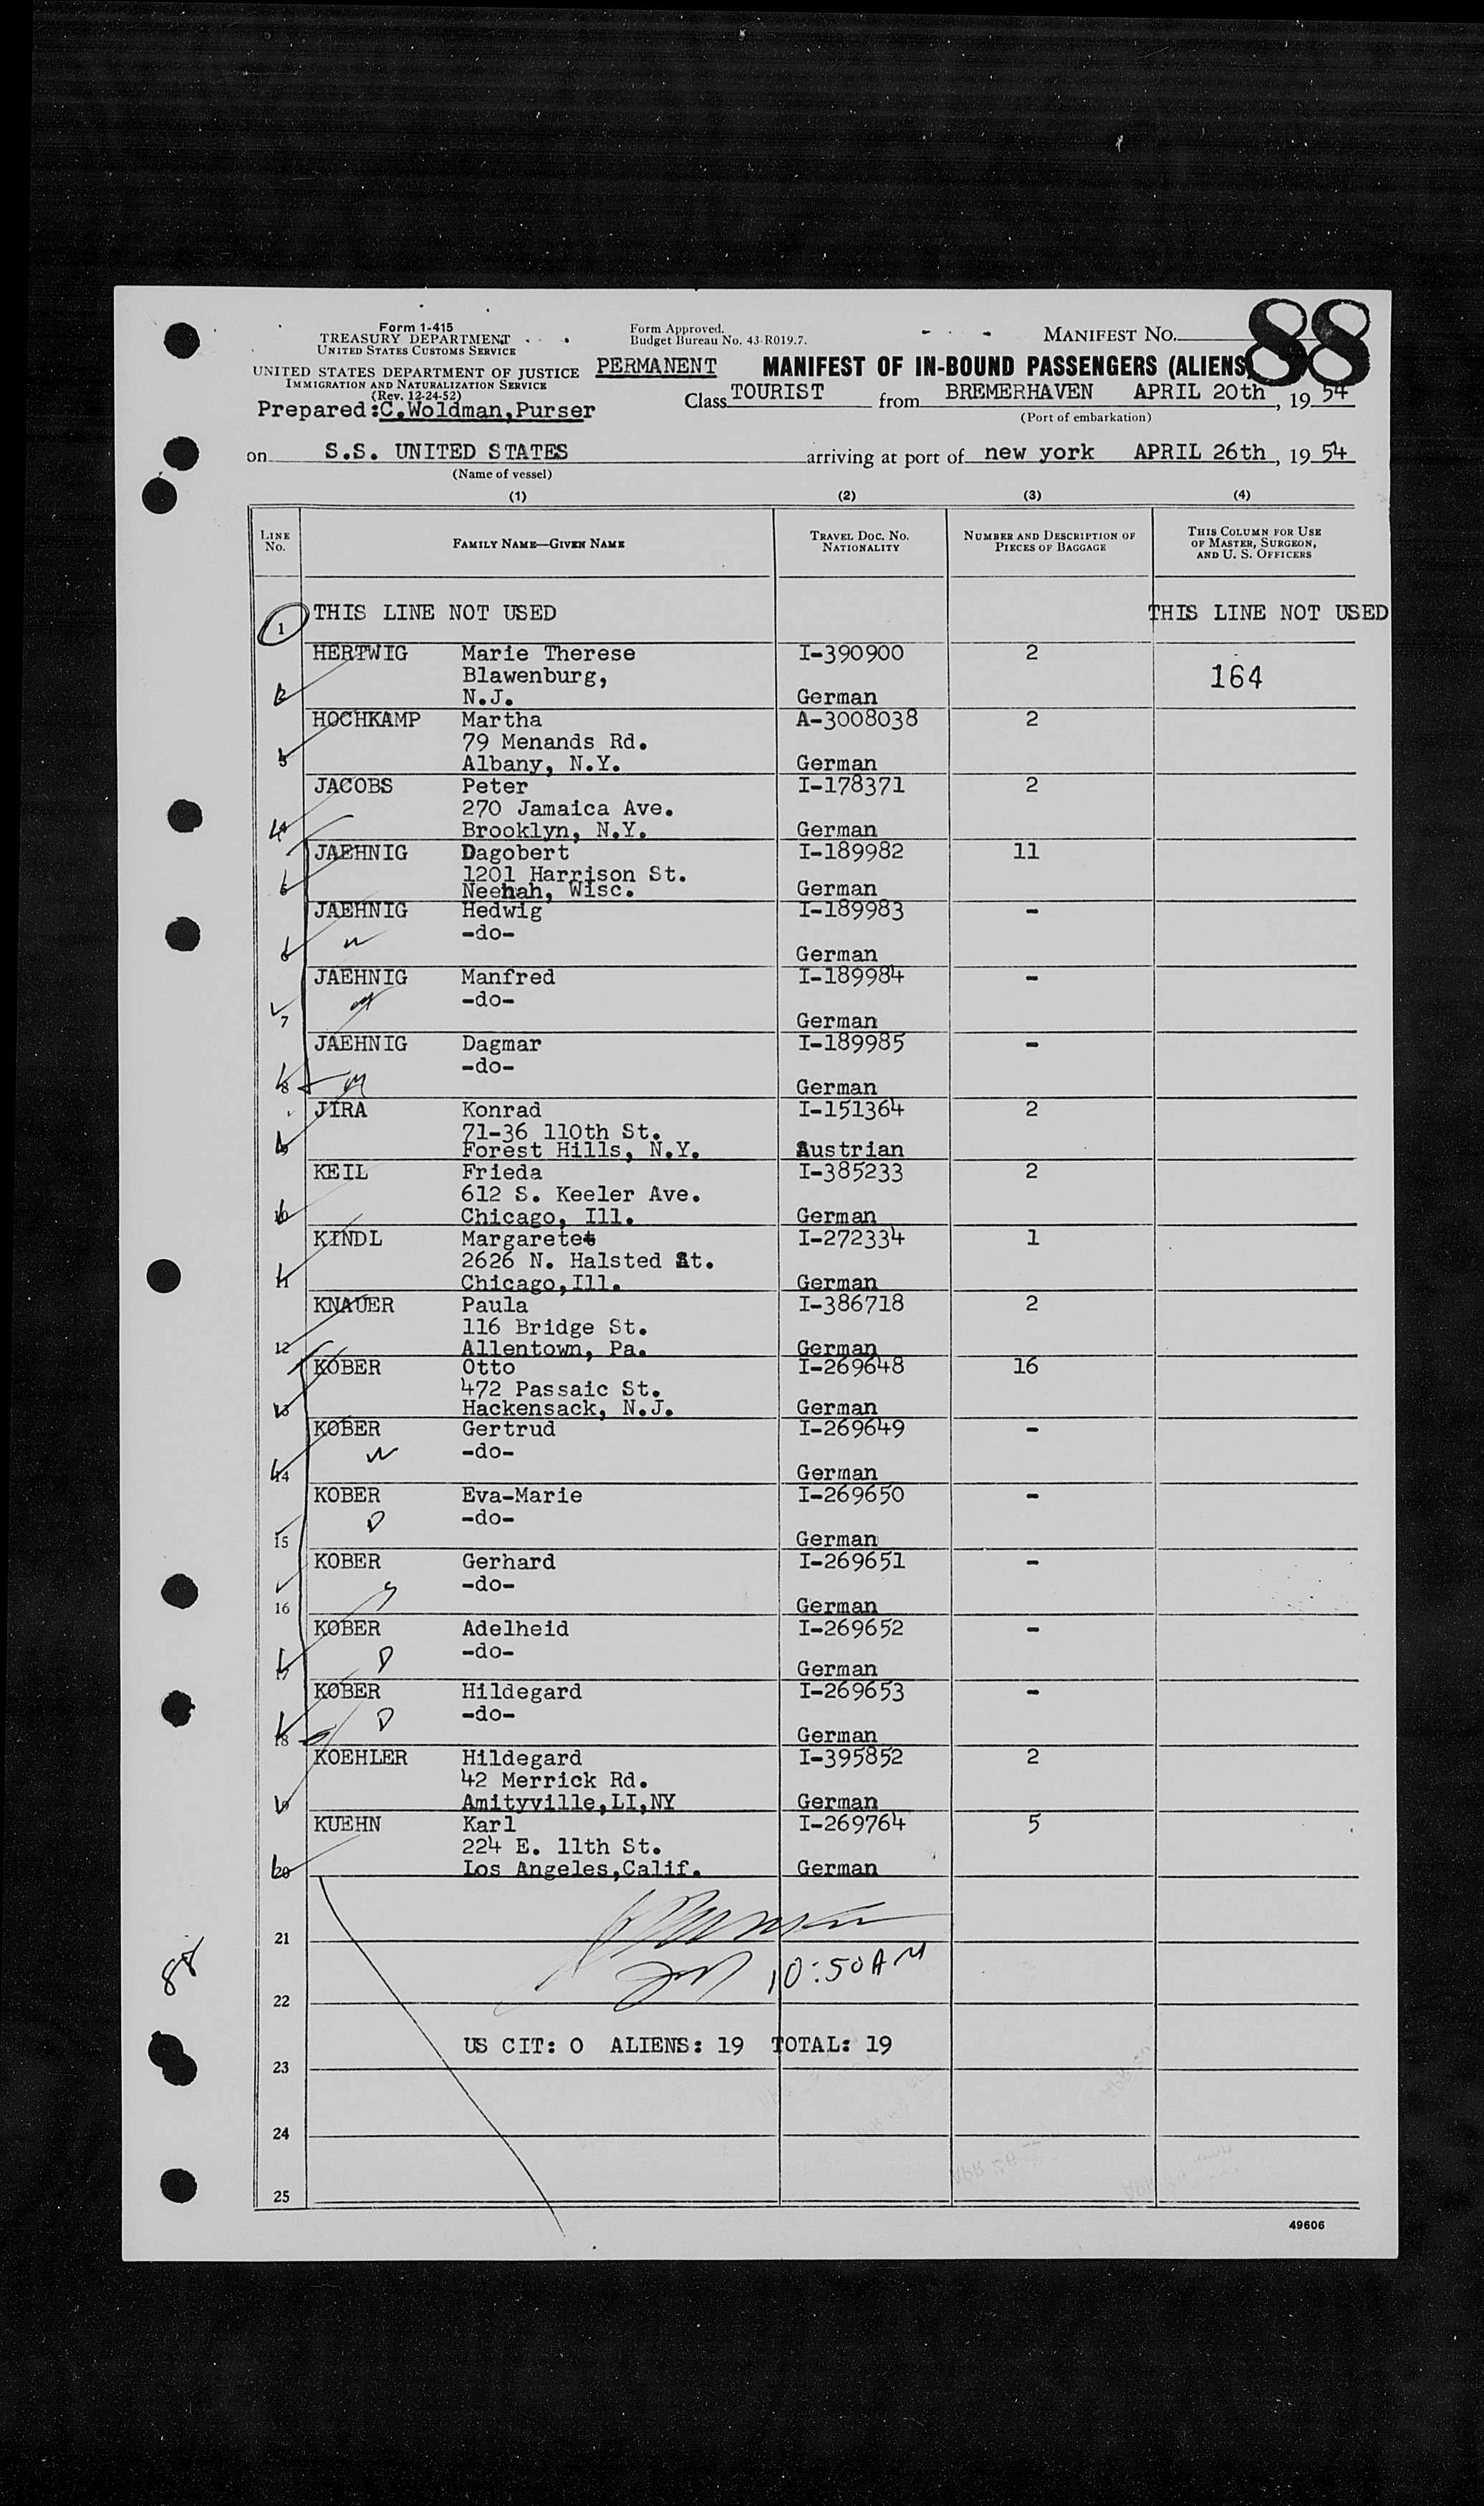 Form 1-415
TREASURY DEPARTMENT
UNITED STATES CUSTOMS SERVICE
UNITED STATES DEPARTMENT OF JUSTICE
IMMIGRATION AND NATURALIZATION SERVICE
(Rev. 12-24-52)
Prepared:C.Woldman,Purser
Form Approved.
Budget Bureau No. 43-R019.7.
MANIFEST NO. 88
PERMANENT MANIFEST OF IN-BOUND PASSENGERS (ALIENS)
Class TOURIST from BREMERHAVEN APRIL 20th, 19 54
(Port of embarkation)
on S.S. UNITED STATES arriving at port of new york APRIL 26th, 19 54
(Name of vessel)
(1) (2) (3) (4)
LINE NO. FAMILY NAME—GIVEN NAME TRAVEL DOC. NO. NATIONALITY NUMBER AND DESCRIPTION OF PIECES OF BAGGAGE THIS COLUMN FOR USE OF MASTER, SURGEON, AND U. S. OFFICERS
1 THIS LINE NOT USED THIS LINE NOT USED
HERTWIG Marie Therese I-390900 2
Blawenburg, 164
2 N.J. German
HOCHKAMP Martha A-3008038 2
79 Menands Rd.
3 Albany, N.Y. German
JACOBS Peter I-178371 2
270 Jamaica Ave.
4 Brooklyn, N.Y. German
JAEHNIG Dagobert I-189982 11
1201 Harrison St.
5 Neenah, Wisc. German
JAEHNIG Hedwig I-189983 -
-do-
6 German
JAEHNIG Manfred I-189984 -
-do-
7 German
JAEHNIG Dagmar I-189985 -
-do-
8 German
JIRA Konrad I-151364 2
71-36 110th St.
9 Forest Hills, N.Y. Austrian
KEIL Frieda I-385233 2
612 S. Keeler Ave.
10 Chicago, Ill. German
KINDL Margaretet I-272334 1
2626 N. Halsted St.
11 Chicago,Ill. German
KNAUER Paula I-386718 2
116 Bridge St.
12 Allentown, Pa. German
KOBER Otto I-269648 16
472 Passaic St.
13 Hackensack, N.J. German
KOBER Gertrud I-269649 -
-do-
14 German
KOBER Eva-Marie I-269650 -
D -do-
15 German
KOBER Gerhard I-269651 -
-do-
16 German
KOBER Adelheid I-269652 -
D -do-
17 German
KOBER Hildegard I-269653 -
D -do-
18 German
KOEHLER Hildegard I-395852 2
42 Merrick Rd.
19 Amityville,LI,NY German
KUEHN Karl I-269764 5
224 E. 11th St.
20 Los Angeles,Calif. German
21
10:50AM
88
22
US CIT: 0 ALIENS: 19 TOTAL: 19
23
24
25
49606